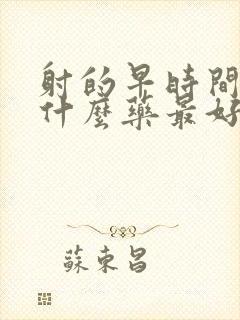 射的早時間
什麼藥最好
蘇東昌